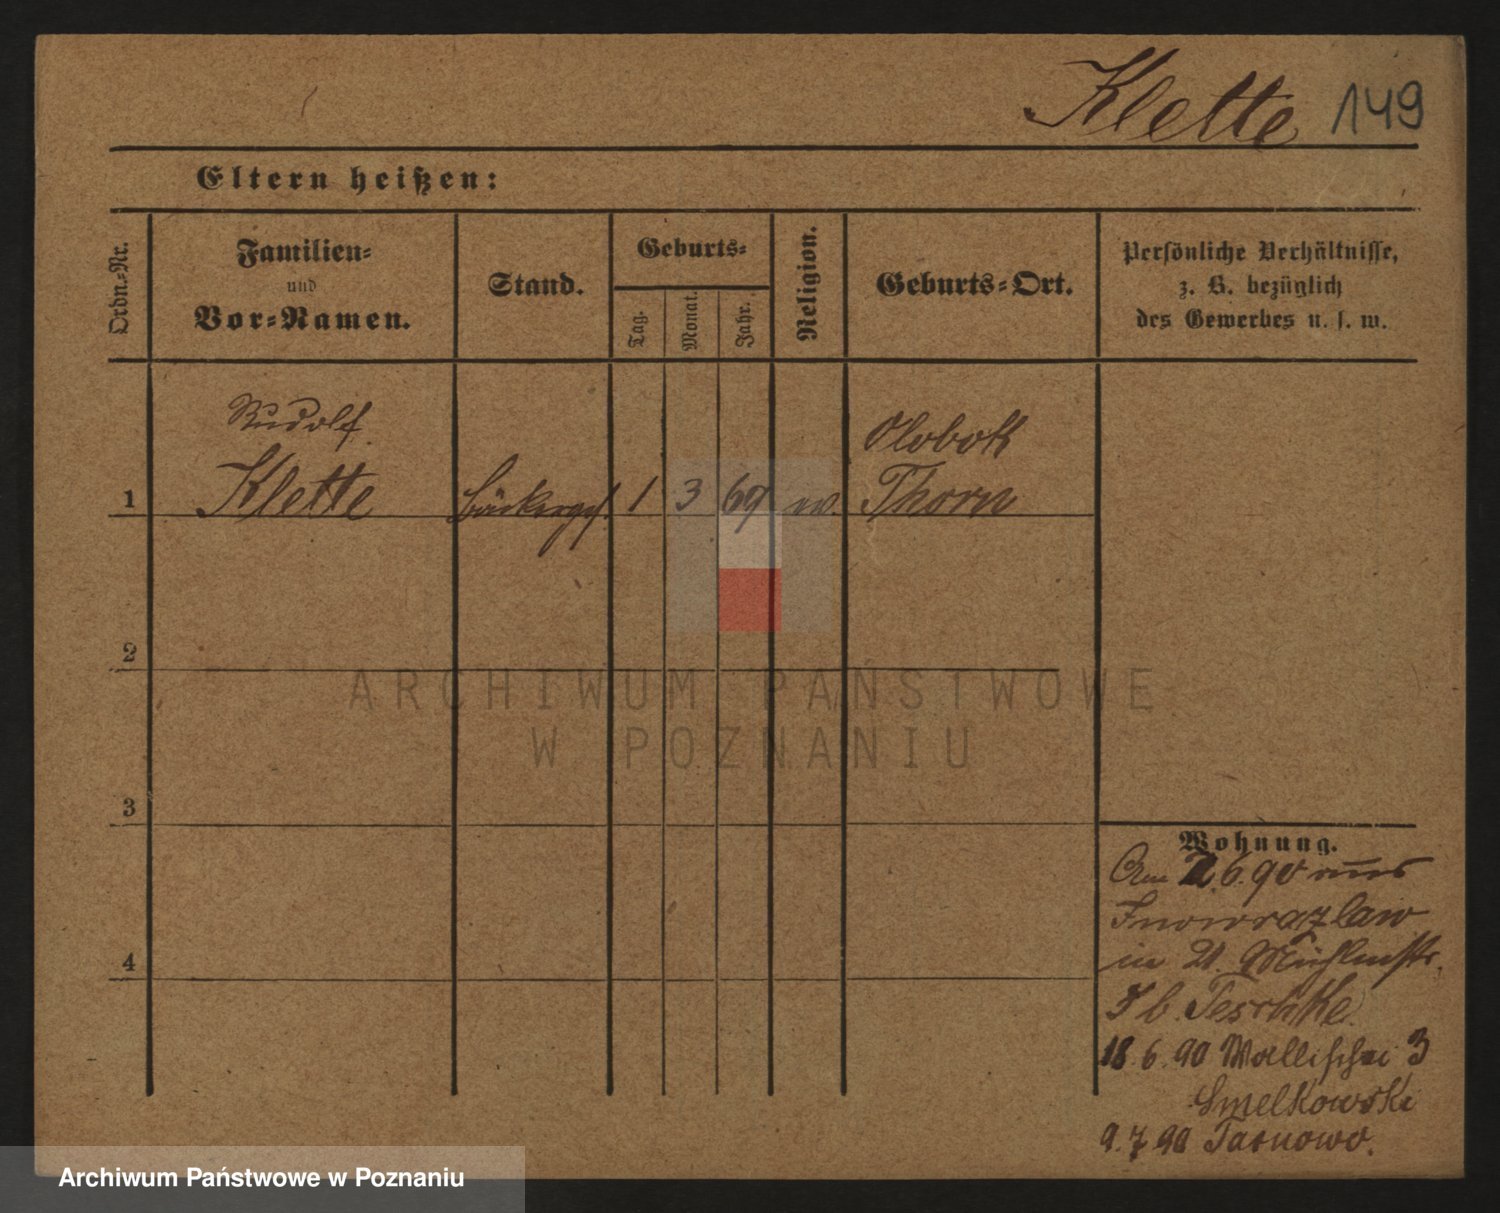 Klette 149
Eltern heißen:
Ordn.-Nr.
Familien-
und
Vor-Namen.
Stand.
Geburts-
Tag.
Monat.
Jahr.
Religion.
Geburts-Ort.
Persönliche Verhältnisse,
z. B. bezüglich
des Gewerbes u. s. w.
Rudolf
Klette
1
Bäckerges.
1
3
69
ev
Olobok
Thorn
2
3
4
Wohnung.
Am 2.6.90 aus
Inowrazlaw
in 21. Mühlenstr.
7 b. Teschke.
18.6.90 Wallischei 3
Smelkowski
9.7.90 Tarnowo.
ARCHIWUM PAŃSTWOWE
W POZNANIU
Archiwum Państwowe w Poznaniu